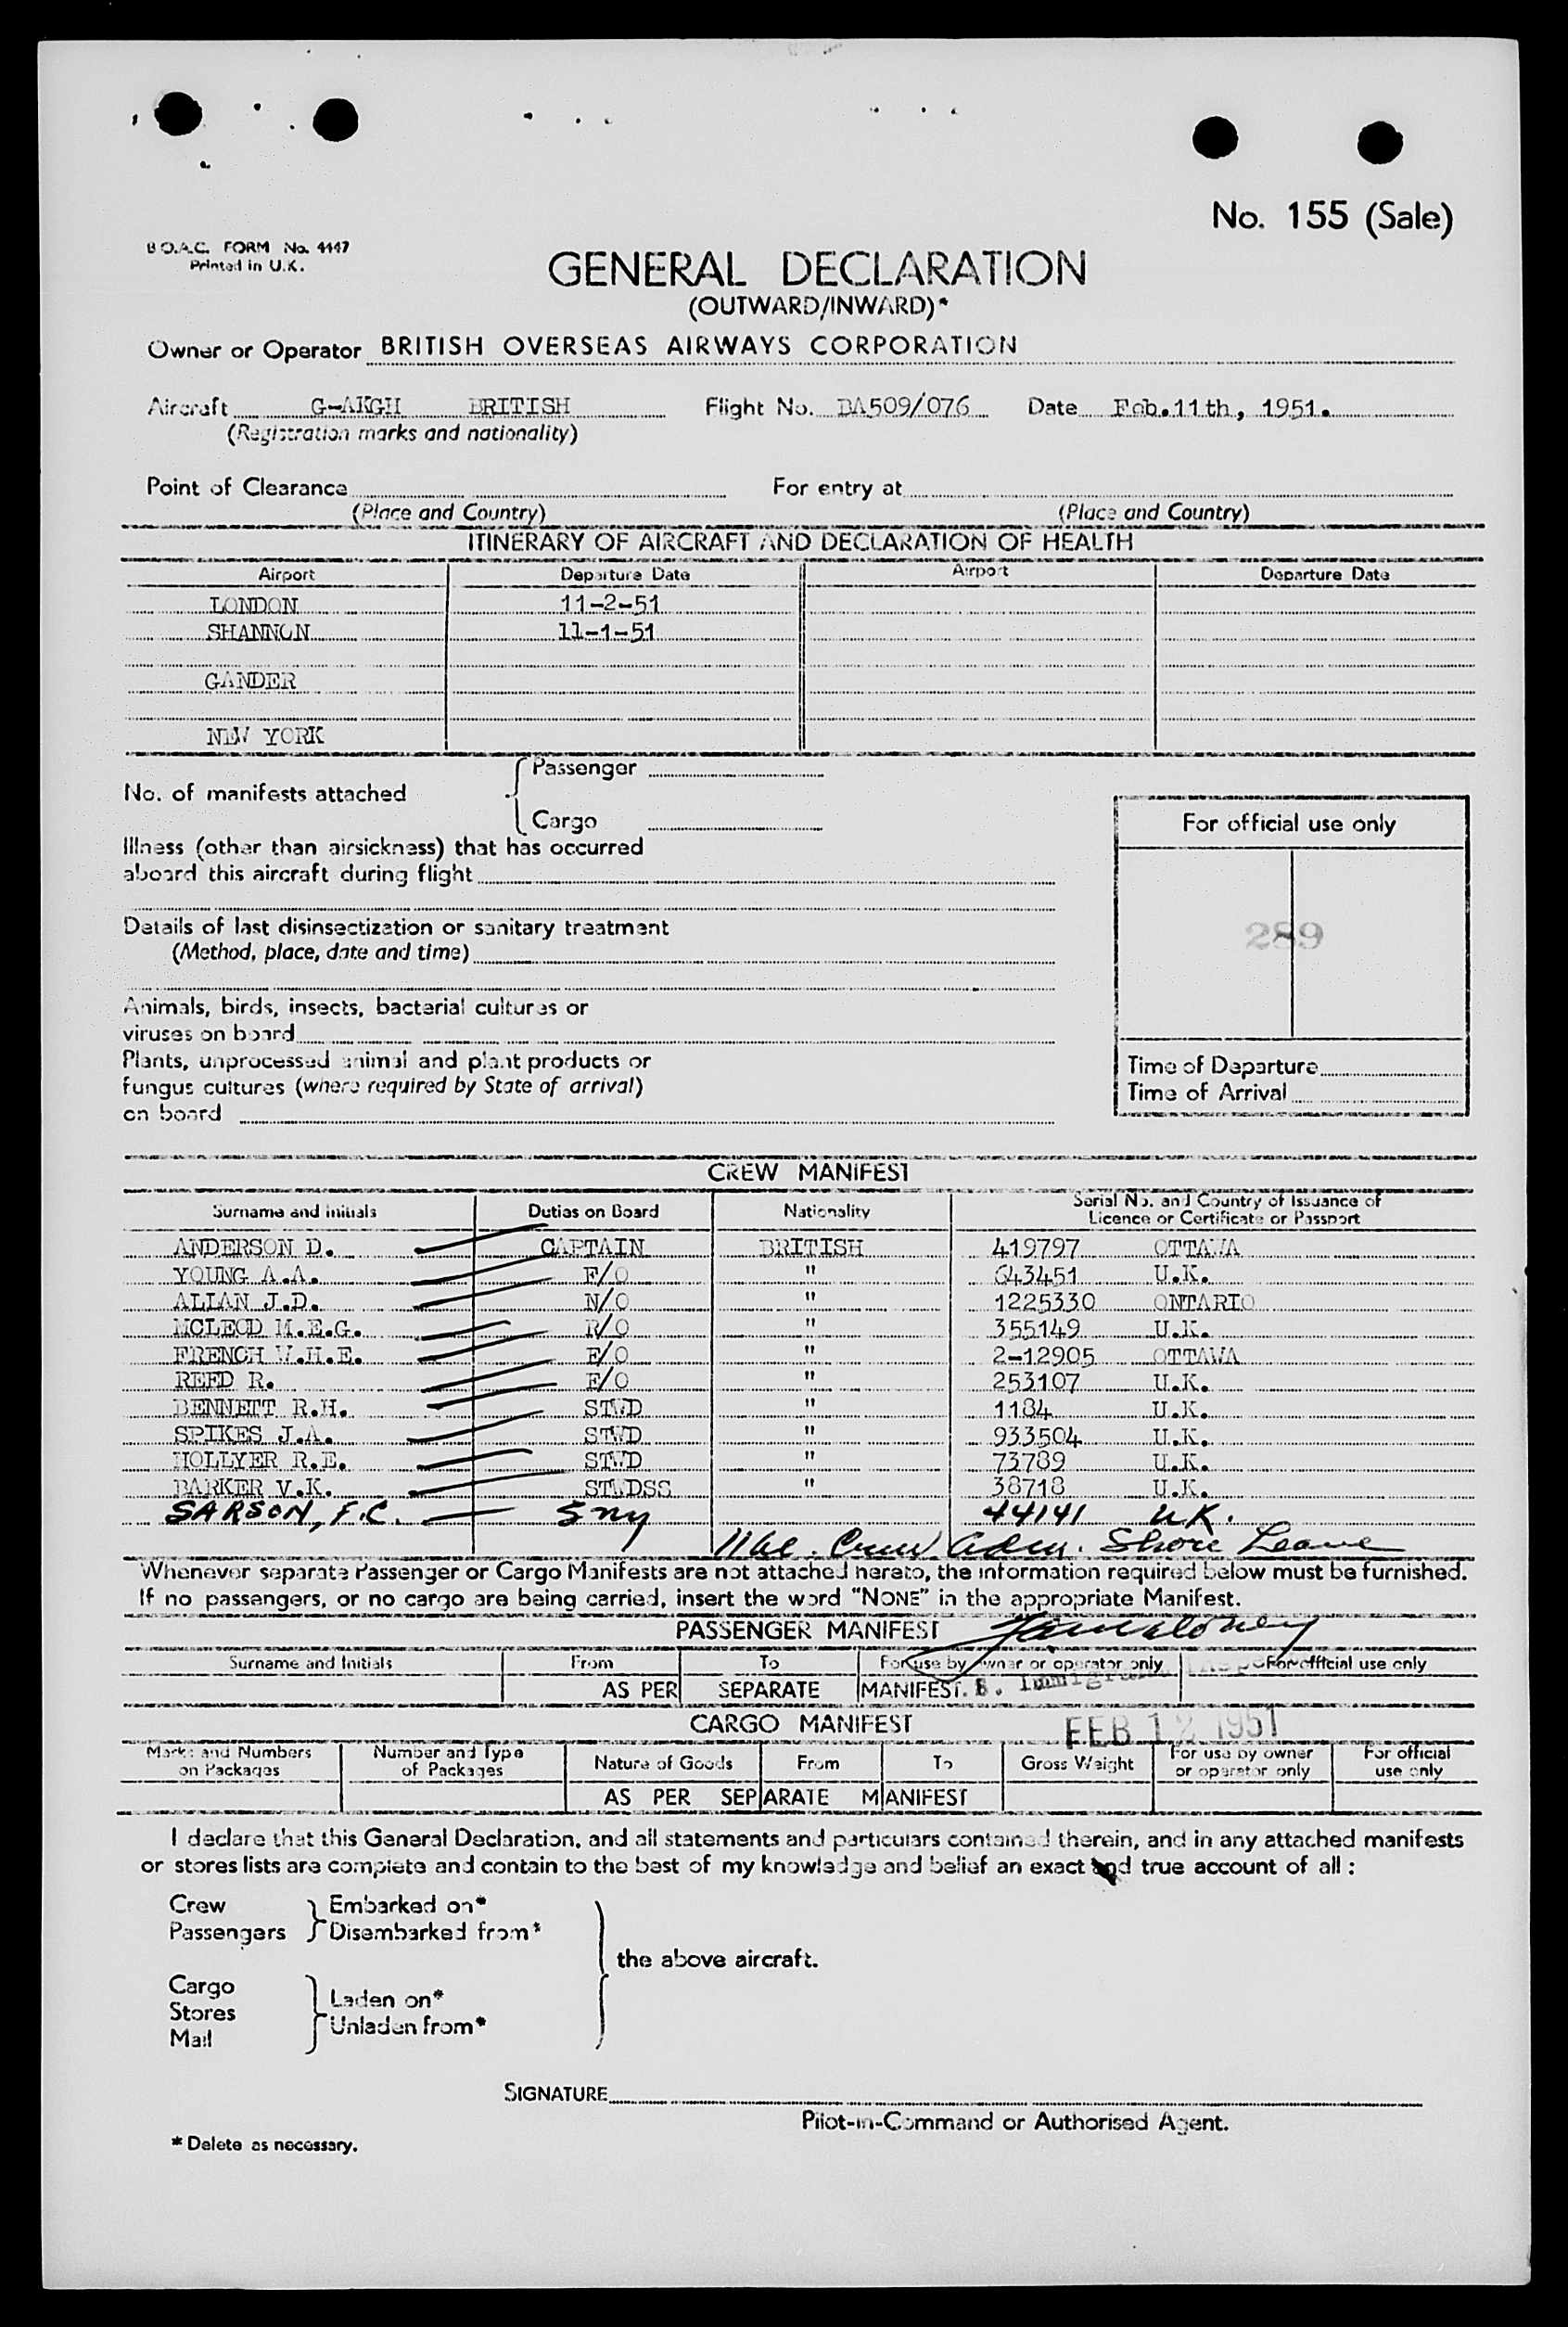 No. 155 (Sale)
B.O.A.C. FORM No. 4447
Printed in U.K.
GENERAL DECLARATION
(OUTWARD/INWARD)*
Owner or Operator BRITISH OVERSEAS AIRWAYS CORPORATION
Aircraft G-AKGH BRITISH Flight No. BA509/076 Date Feb.11th, 1951.
(Registration marks and nationality)
Point of Clearance For entry at
(Place and Country) (Place and Country)
ITINERARY OF AIRCRAFT AND DECLARATION OF HEALTH
Airport Departure Date Airport Departure Date
LONDON 11-2-51
SHANNON 11-1-51
GANDER
NEW YORK
No. of manifests attached { Passenger
Cargo
For official use only
Illness (other than airsickness) that has occurred
aboard this aircraft during flight
Details of last disinsectization or sanitary treatment
(Method, place, date and time)
289
Animals, birds, insects, bacterial cultures or
viruses on board
Plants, unprocessed animal and plant products or
fungus cultures (where required by State of arrival)
on board
Time of Departure
Time of Arrival
CREW MANIFEST
Surname and initials Duties on Board Nationality Serial No. and Country of Issuance of
Licence or Certificate or Passport
ANDERSON D. CAPTAIN BRITISH 419797 OTTAWA
YOUNG A.A. F/O " 643451 U.K.
ALLAN J.D. N/O " 1225330 ONTARIO
MCLEOD M.E.G. R/O " 355149 U.K.
FRENCH W.H.E. E/O " 2-12905 OTTAWA
REED R. E/O " 253107 U.K.
BENNETT R.H. STWD " 1184 U.K.
SPIKES J.A. STWD " 933504 U.K.
HOLLYER R.E. STWD " 73789 U.K.
BARKER V.K. STWDSS " 38718 U.K.
SARSON, F.C. Sny 44141 U.K.
11 Crew Adm. Shore Leave
Whenever separate Passenger or Cargo Manifests are not attached hereto, the information required below must be furnished.
If no passengers, or no cargo are being carried, insert the word "NONE" in the appropriate Manifest.
PASSENGER MANIFEST
Surname and Initials From To For use by owner or operator only For official use only
AS PER SEPARATE MANIFEST.
CARGO MANIFEST
FEB 12 1951
Marks and Numbers on Packages Number and Type of Packages Nature of Goods From To Gross Weight For use by owner or operator only For official use only
AS PER SEPARATE MANIFEST
I declare that this General Declaration, and all statements and particulars contained therein, and in any attached manifests
or stores lists are complete and contain to the best of my knowledge and belief an exact and true account of all :
Crew } Embarked on*
Passengers } Disembarked from*
the above aircraft.
Cargo
Stores } Laden on*
Mail } Unladen from*
SIGNATURE
Pilot-in-Command or Authorised Agent.
* Delete as necessary.